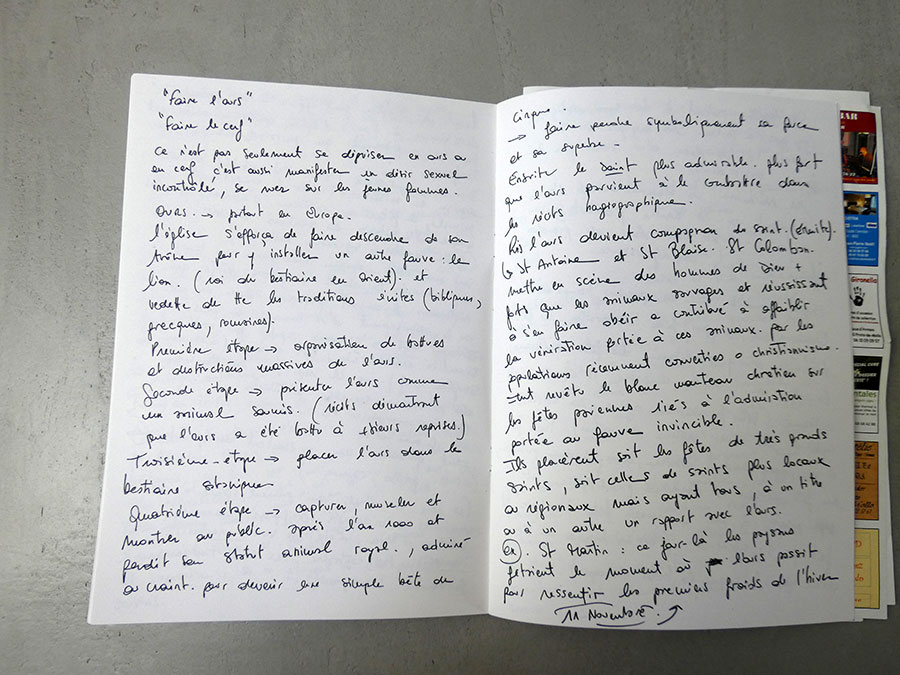 "Faire l'ours"
"Faire le cerf"
Ce n'est pas seulement se déguiser en ours ou
en cerf c'est aussi manifester un désir sexuel
incontrôlé, se ruer sur les jeunes femmes.
Ours. → partout en Europe.
l'église s'efforça de faire descendre de son
trône pour y installer un autre fauve : le
lion. (roi du bestiaire en orient). et
vedette de tte les traditions écrites (bibliques,
grecques, romaines).
Première étape → organisation de battues
et destructions massives de l'ours.
Seconde étape → présenter l'ours comme
un animal soumis. (récits démontrant
que l'ours a été battu à +sieurs reprises.)
Troisième étape → placer l'ours dans le
bestiaire satanique
Quatrième étape → capturer, museler et
montrer au public. après l'an 1000 et
perdit son statut animal royal., admiré
ou craint. pour devenir une simple bête de
cirque.
→ faire perdre symboliquement sa force
et sa superbe.
Ensuite le saint plus admirable. plus fort
que l'ours parvient à le combattre dans
les récits hagiographique.
Puis l'ours devient compagnon du saint. (Ermite).
↳ St Antoine et St Blaise. St Colomban.
mettre en scène des hommes de Dieu +
forts que les animaux sauvages et réussissant
à s'en faire obéir a contribué à affaiblir
la vénération portée à ces animaux. par les
populations récemment converties o christianisme.
Ont revêtu le blanc manteau chrétien sur
les fêtes païennes liés à l'admiration
portée au fauve invincible.
Ils placèrent, soit les fêtes de très grands
saints, soit celles de saints plus locaux
ou régionaux mais ayant tous, à un titre
ou à un autre un rapport avec l'ours.
Ex. St Martin : ce jour-là les paysans
fêtaient le moment où l'ours
pour ressentir les premiers froids de l'hiver
11 Novembre.
BAR
Gironella